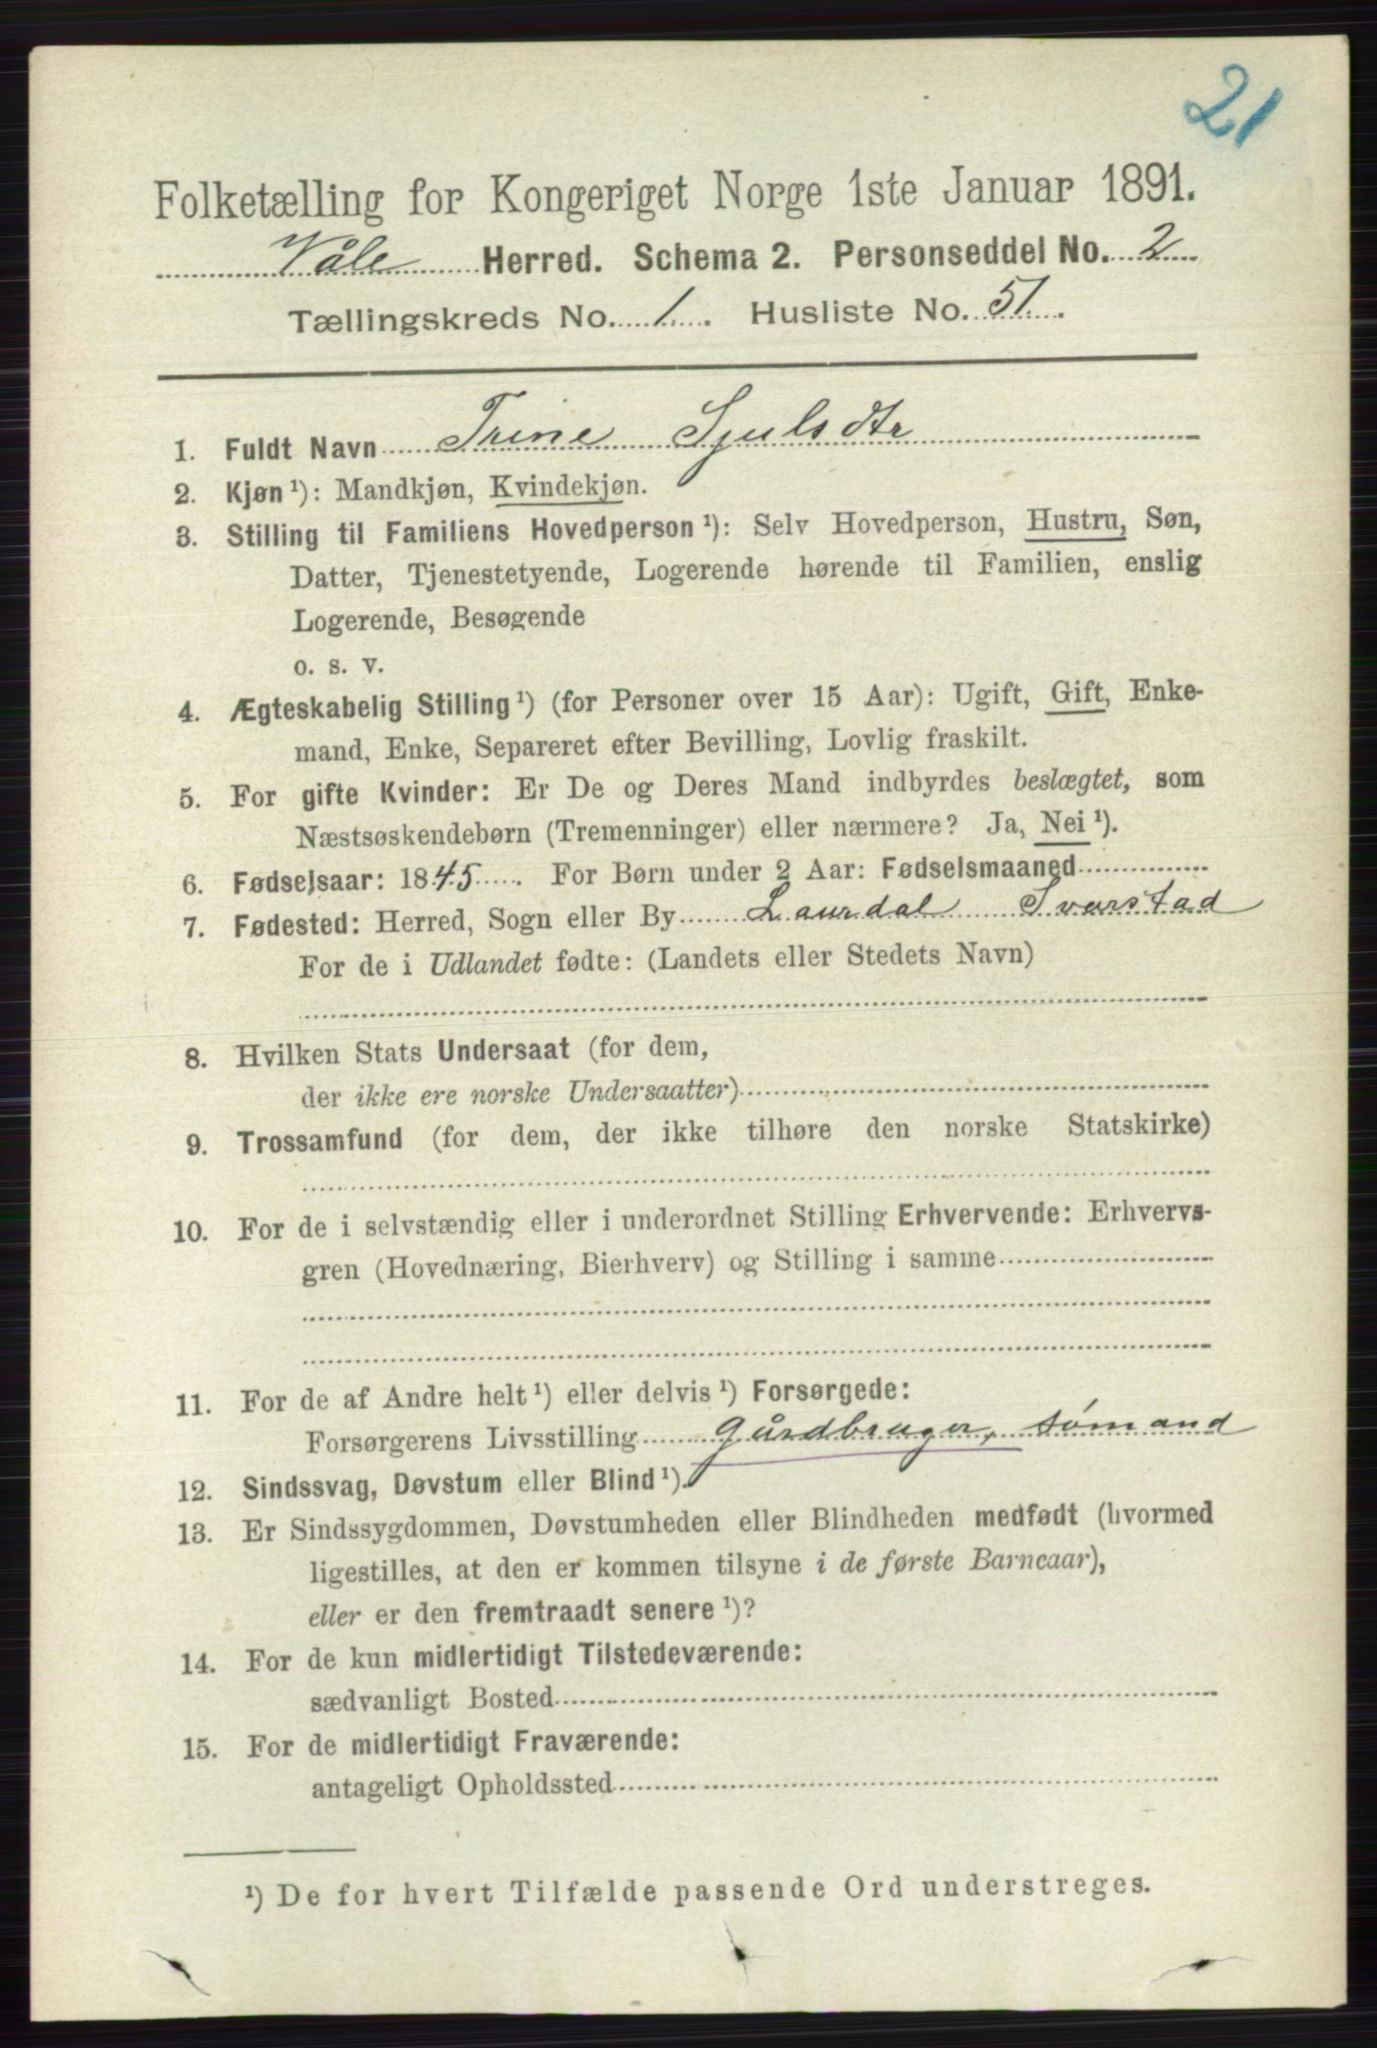 21
Folketælling for Kongeriget Norge 1ste Januar 1891.
Våle Herred. Schema 2. Personseddel No. 2
Tællingskreds No. 1. Husliste No. 51.
1. Fuldt Navn Trine Sjulsdtr
2. Kjøn ¹): Mandkjøn, Kvindekjøn.
3. Stilling til Familiens Hovedperson ¹): Selv Hovedperson, Hustru, Søn,
Datter, Tjenestetyende, Logerende hørende til Familien, enslig
Logerende, Besøgende
o. s. v.
4. Ægteskabelig Stilling ¹) (for Personer over 15 Aar): Ugift, Gift, Enke-
mand, Enke, Separeret efter Bevilling, Lovlig fraskilt.
5. For gifte Kvinder: Er De og Deres Mand indbyrdes beslægtet, som
Næstsøskendebørn (Tremenninger) eller nærmere? Ja, Nei ¹).
6. Fødselsaar: 1845. For Børn under 2 Aar: Fødselsmaaned
7. Fødested: Herred, Sogn eller By Laurdal Svarstad
For de i Udlandet fødte: (Landets eller Stedets Navn)
8. Hvilken Stats Undersaat (for dem,
der ikke ere norske Undersaatter)
9. Trossamfund (for dem, der ikke tilhøre den norske Statskirke)
10. For de i selvstændig eller i underordnet Stilling Erhvervende: Erhvervs-
gren (Hovednæring, Bierhverv) og Stilling i samme
11. For de af Andre helt ¹) eller delvis ¹) Forsørgede:
Forsørgerens Livsstilling gårdbruger, sømand
12. Sindssvag, Døvstum eller Blind ¹).
13. Er Sindssygdommen, Døvstumheden eller Blindheden medfødt (hvormed
ligestilles, at den er kommen tilsyne i de første Barneaar),
eller er den fremtraadt senere ¹)?
14. For de kun midlertidigt Tilstedeværende:
sædvanligt Bosted
15. For de midlertidigt Fraværende:
antageligt Opholdssted
¹) De for hvert Tilfælde passende Ord understreges.